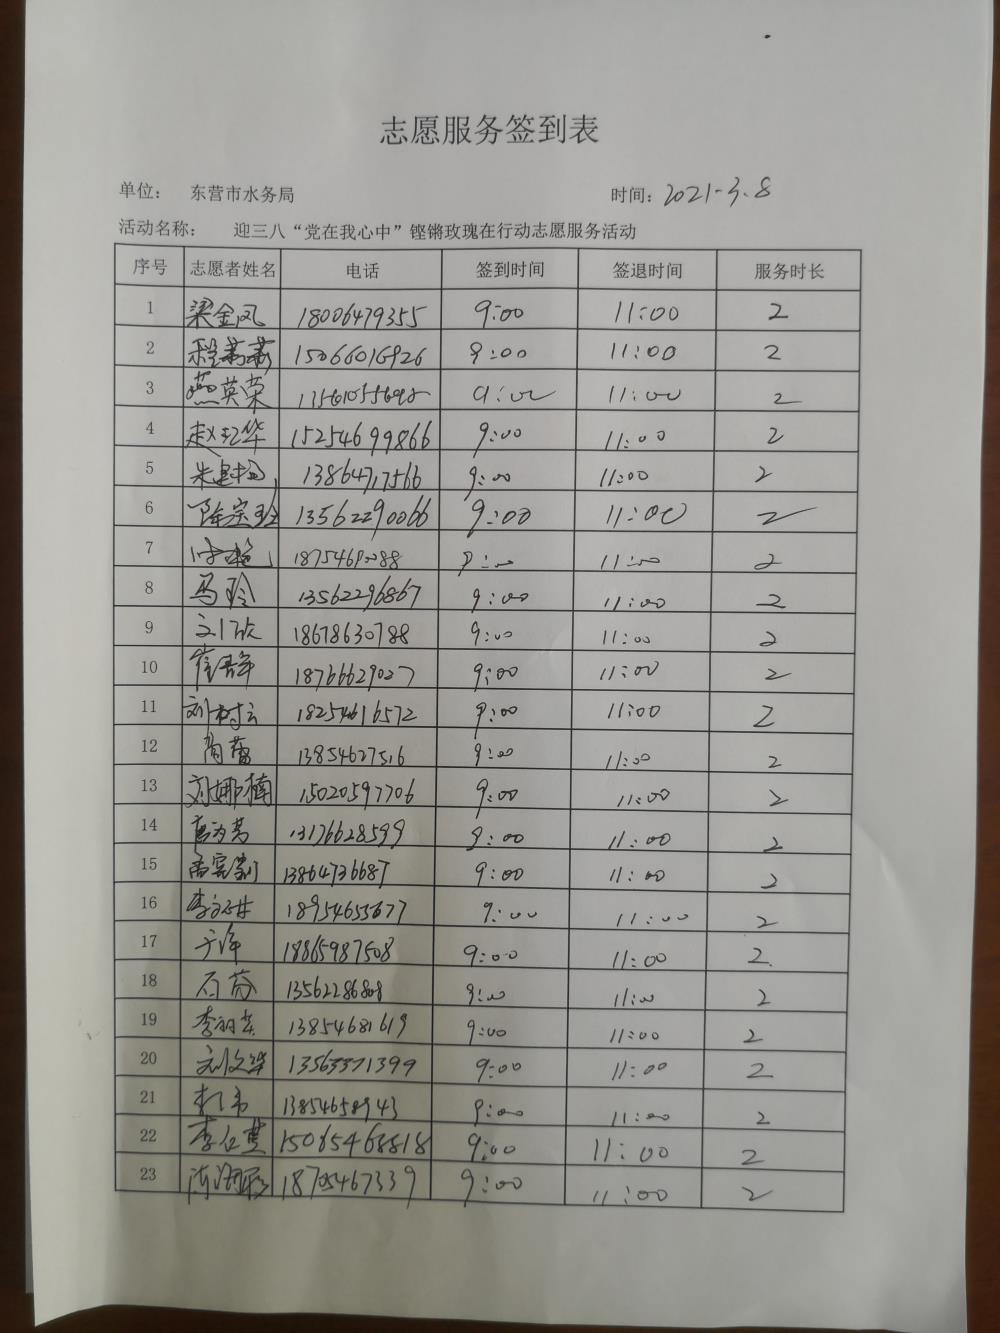 志愿服务签到表
单位： 东营市水务局 时间：2021-3.8
活动名称： 迎三八“党在我心中”铿锵玫瑰在行动志愿服务活动
序号 志愿者姓名 电话 签到时间 签退时间 服务时长
1 梁金凤 18006479355 9:00 11:00 2
2 15066016926 9:00 11:00 2
3 燕英荣 9:00 11:00 2
4 赵红华 15254699866 9:00 11:00 2
5 9:00 11:00 2
6 13562290066 9:00 11:00 2
7 9:00 11:00 2
8 马玲 13562296867 9:00 11:00 2
9 18678630788 9:00 11:00 2
10 18766629027 9:00 11:00 2
11 18254616572 9:00 11:00 2
12 13854627516 9:00 11:00 2
13 刘娜楠 15020597706 9:00 11:00 2
14 13176628599 9:00 11:00 2
15 13864736687 9:00 11:00 2
16 18954655677 9:00 11:00 2
17 18865987508 9:00 11:00 2
18 13562286808 9:00 11:00 2
19 13854681619 9:00 11:00 2
20 刘文华 13563371399 9:00 11:00 2
21 13854658943 9:00 11:00 2
22 15065468818 9:00 11:00 2
23 18705467339 9:00 11:00 2